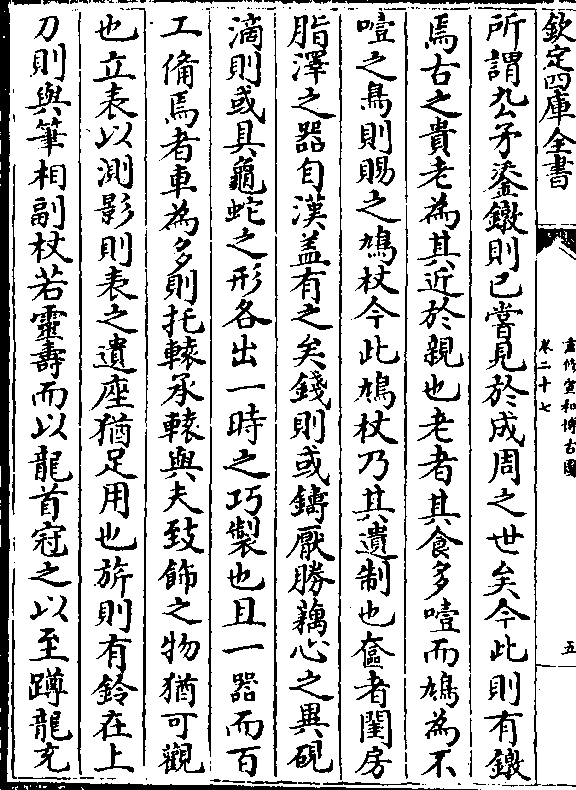 欽定四庫全書
重修宣和博古圖
卷二十七
五
所謂厹矛鋈鐓則已嘗見於成周之世矣今此則有鐓
焉古之貴老為其近於親也老者其食多噎而鳩為不
噎之鳥則賜之鳩杖今此鳩杖乃其遺制也奩者閨房
脂澤之器自漢盖有之矣錢則或鑄厭勝藕心之異硯
滴則或具龜蛇之形各出一時之巧製也且一器而百
工備焉者車為多則托轅承轅與夫致飾之物猶可觀
也立表以測影則表之遺座猶足用也旂則有鈴在上
刀則與筆相副杖若靈壽而以龍首冠之以至蹲龍充